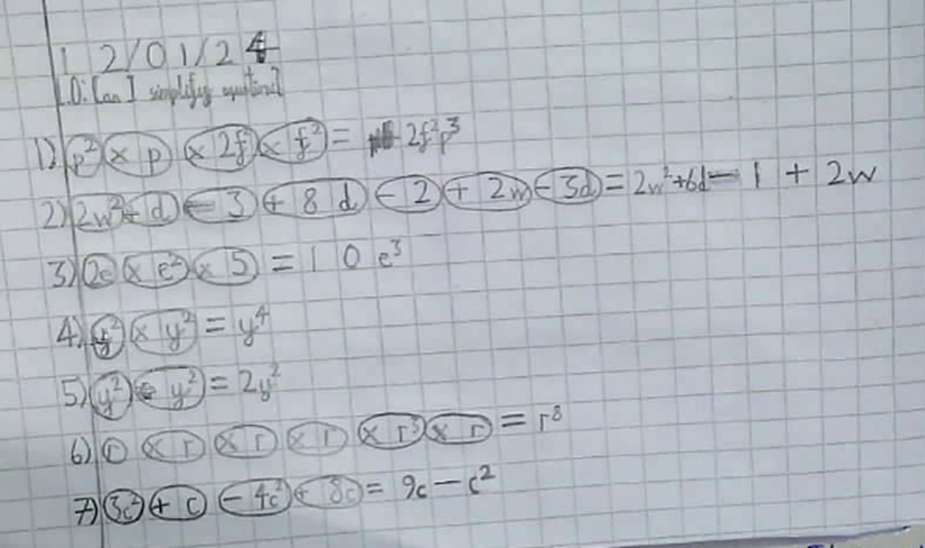 12/01/24
L.O: Can I simplify equations?
1) p² × p × 2f × f² = 2f²p³
2) 2w² + d - 3 + 8d - 2 + 2w - 3d = 2w² + 6d - 1 + 2w
3) 2e × e² × 5 = 10e³
4) y² × y² = y⁴
5) y² y² = 2y²
6) r × r × r × r × r³ × r = r⁸
7) 3c² + c - 4c² + 8c = 9c - c²